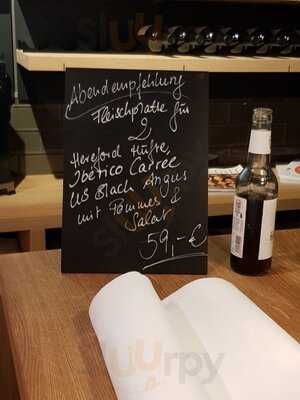 Abendempfehlung
Fleischplatte für
2
Hereford Hüfte,
Iberico Carree
US Black Angus
mit Pommes &
Salat
59,- €
sluurpy